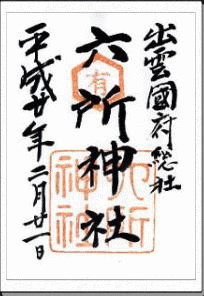 出雲國府総社
六所神社
平成廿年二月廿一日
有
六所
神社